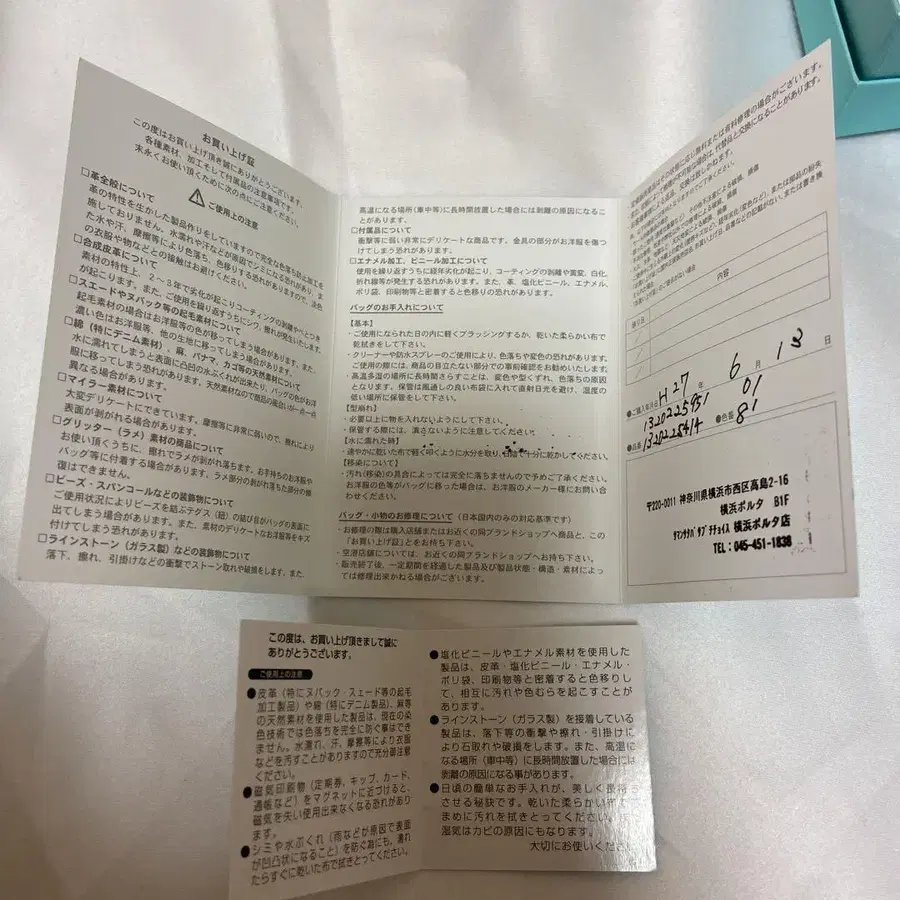 お買い上げ証
この度はお買い上げ頂き誠にありがとうございます。
各種素材、加工そして付属品の注意事項です。
末永くお使い頂くために次の点にご注意ください。
ご使用上の注意
□革全般について
革の特性を生かした製品作りをしていますので完全な色落ち防止加工を
施しておりません。水濡れや汗などが原因でシミになる恐れがあり、ま
た水や汗、摩擦等により色落ち、色移りする恐れがありますので、淡色
の衣服や物などとの接触はお避けください。
□合成皮革について
素材の特性上、2～3年で劣化が起こりコーティングの剥離やべとつき
が起こります。また、ご使用を繰り返すうちにシワ、擦れが発生いたします。
□スエードやヌバック等の起毛素材について
起毛素材の場合はお洋服等の色が移ってしまう場合があります。また、
濃い色はお洋服等、他の生地に移ってしまう場合があります。
□綿（特にデニム素材）、麻、パナマ、カゴ等の天然素材について
水に濡れてしまうと表面に凸凹の水ぶくれが出来たり、バッグの色がお洋
服に移ってしまう恐れがあります。天然素材なので商品の風合いが一点一点
異なる場合があります。
□マイラー素材について
大変デリケートにできています。摩擦等に非常に弱いので、擦れにより
表面が剥がれる場合があります。
□グリッター（ラメ）素材の商品について
お使い頂くうちに、擦れてラメが剥がれ落ちます。お手持ちのお洋服や
バッグ等に付着する場合があります。ラメ部分の剥がれ落ちた部分の修
復はできません。
□ビーズ・スパンコールなどの装飾物について
ご使用状況によりビーズを結ぶテグス（紐）の結び目がバッグの表面に
出てしまう恐れがあります。また、素材のデリケートなお洋服等をキズ
付けてしまう恐れがあります。
□ラインストーン（ガラス製）などの装飾物について
落下、擦れ、引掛けなどの衝撃でストーン取れや破損をします。また、
高温になる場所（車中等）に長時間放置した場合には剥離の原因になるこ
とがあります。
□付属品について
衝撃等に弱い非常にデリケートな商品です。金具の部分がお洋服を傷つ
けてしまう恐れがあります。
□エナメル加工、ビニール加工について
使用を繰り返すうちに経年劣化が起こり、コーティングの剥離や黄変、白化、
折れ線等が発生する恐れがあります。また、革、塩化ビニール、エナメル、
ポリ袋、印刷物等と密着すると色移りの恐れがあります。
バッグのお手入れについて
【基本】
・ご使用になられた日の内に軽くブラッシングするか、乾いた柔らかい布で
乾拭きをして下さい。
・クリーナーや防水スプレーのご使用により、色落ちや変色の恐れがあります。
ご使用の際には、商品の目立たない部分での事前確認をお勧めいたします。
・高温多湿の場所に長時間さらすことは、変色や型くずれ、色落ちの原因
となります。保管は風通しの良い布袋に入れて直射日光を避け、温度の
低い場所に保管して下さい。
【型崩れ】
・必要以上に物を入れないようにして下さい。
・保管する際には、潰さないように注意してください。
【水に濡れた時】
・速やかに乾いた布で軽く叩くように水分を取り、日陰で十分に乾かして下さい。
【移染について】
・汚れ（移染）の具合によっては完全に落ちませんので予めご了承ください。
お洋服の色等がバッグに移った場合は、お洋服のメーカー様にお問い合
わせください。
バッグ・小物のお修理について（日本国内のみの対応基準です）
・お修理の際は購入店舗またはお近くの同ブランドショップへ商品と、この
「お買い上げ証」とをお持ち下さい。
・空港店舗については、お近くの同ブランドショップへお持ち下さい。
・販売終了後、一定期間を経過した製品及び製品状態・構造・素材によっ
ては修理出来かねる場合がございます。
内容
●ご購入年月日 H27年 6月 13日
●品番 1320225951 ●色番 01
1320228414 81
〒220-0011 神奈川県横浜市西区高島2-16
横浜ポルタ B1F
ｻﾏﾝｻﾀﾊﾞｻ ﾌﾟﾁﾁｮｲｽ 横浜ポルタ店
TEL：045-451-1838
この度は、お買い上げ頂きまして誠に
ありがとうございます。
ご使用上の注意
●皮革（特にヌバック・スエード等の起毛
加工製品）や綿（特にデニム製品）、麻等
の天然素材を使用した製品は、現在の染
色技術では色落ちを完全に防ぐ事はでき
ません。水濡れ、汗、摩擦等により衣服
などを汚すことがありますので充分御注意
ください。
●磁気印刷物（定期券、キップ、カード、
通帳など）をマグネットに近づけると、
磁気を失い使用出来なくなる恐れがあり
ます。
●シミや水ぶくれ（雨などが原因で表面
が凹凸状になること）を防ぐ為にも、濡れ
たらすぐに乾いた布で拭きとってください。
●塩化ビニールやエナメル素材を使用した
製品は、皮革・塩化ビニール・エナメル・
ポリ袋、印刷物等と密着すると色移りし
て、相互に汚れや色むらを起こすことが
あります。
●ラインストーン（ガラス製）を接着している
製品は、落下等の衝撃や擦れ・引掛けに
より石取れや破損をします。また、高温に
なる場所（車中等）に長時間放置した場合には
剥離の原因になる事があります。
●日頃の簡単なお手入れが、美しく長持ち
させる秘訣です。乾いた柔らかい布で
まめに汚れを拭きとってください。
湿気はカビの原因にもなります。
大切にお使いください